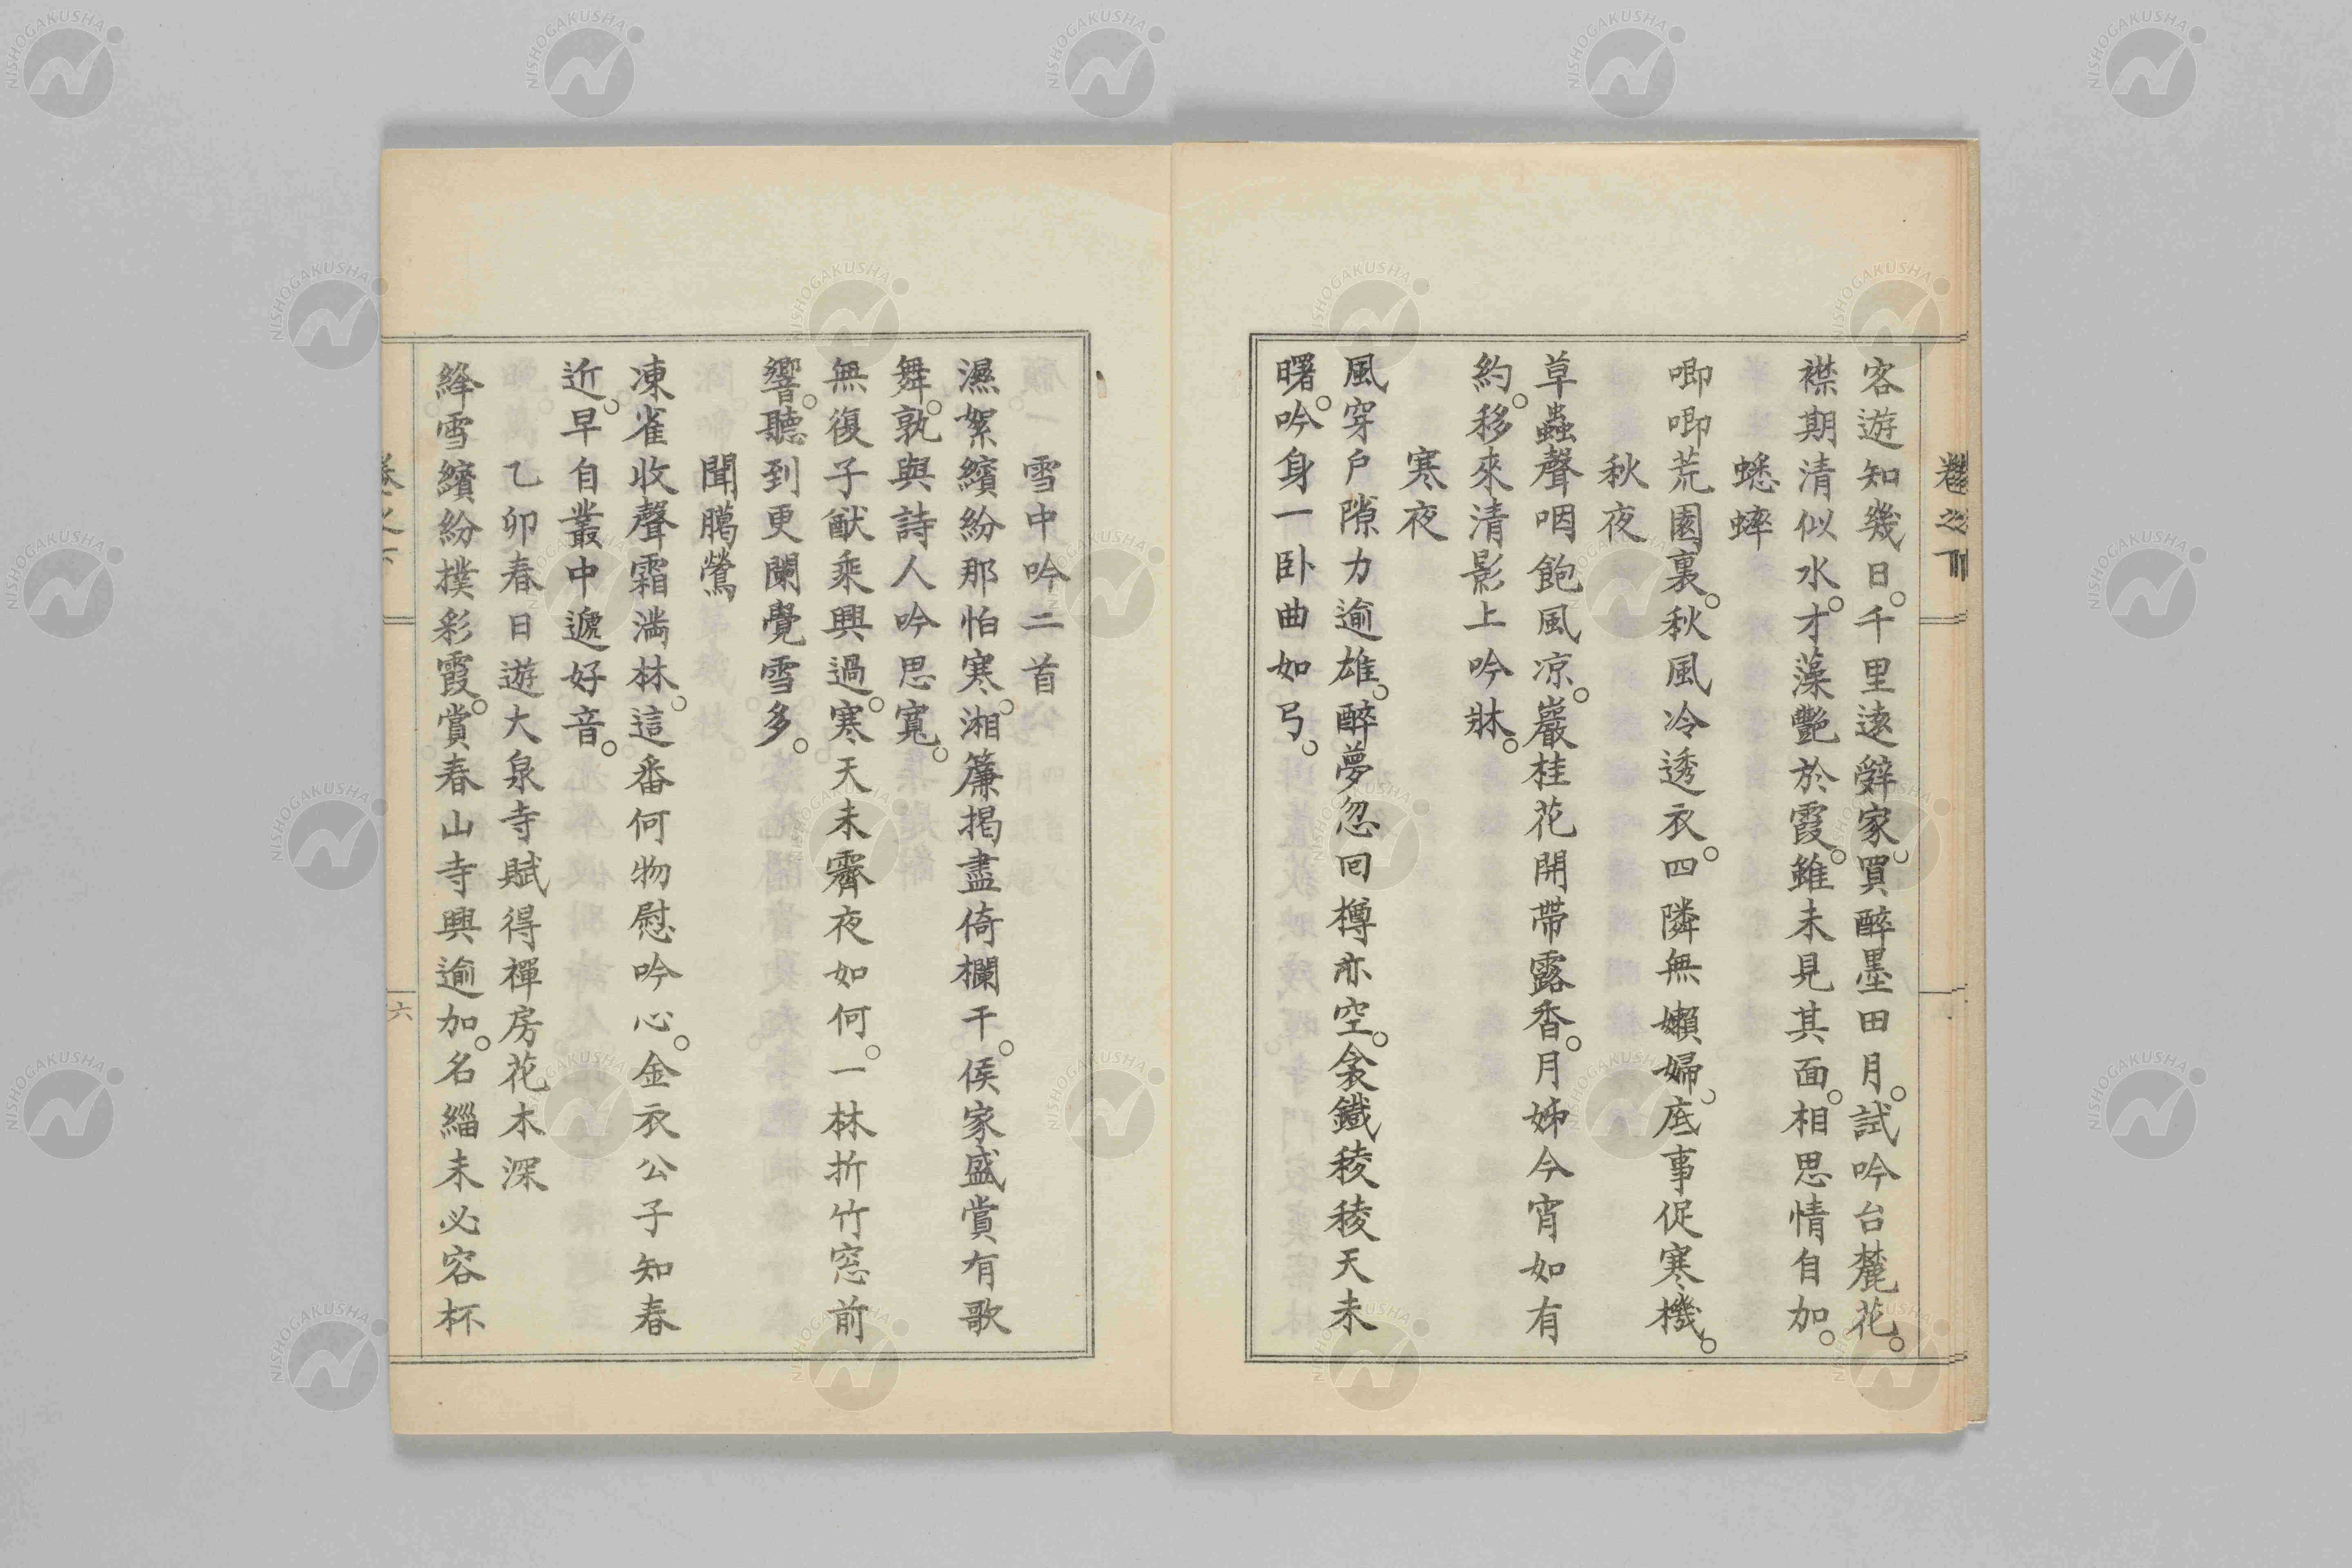 卷之下
客遊知幾日。千里遠辭家。買醉墨田月。試吟台麓花。
襟期清似水。才藻艷於霞。雖未見其面。相思情自加。
蟋蟀
唧唧荒園裏。秋風冷透衣。四隣無嬾婦。底事促寒機。
秋夜
草蟲聲咽飽風凉。巖桂花開帶露香。月姊今宵如有
約。移來清影上吟牀。
寒夜
風穿戶隙力逾雄。醉夢忽回樽亦空。衾鐵稜稜天未
曙。吟身一臥曲如弓。
雪中吟二首
濕絮繽紛那怕寒。湘簾揭盡倚欄干。侯家盛賞有歌
舞。孰與詩人吟思寬。
無復子猷乘興過。寒天未霽夜如何。一林折竹窓前
響。聽到更闌覺雪多。
聞臈鶯
凍雀收聲霜滿林。這番何物慰吟心。金衣公子知春
近。早自叢中遞好音。
乙卯春日遊大泉寺賦得禪房花木深
絳雪繽紛撲彩霞。賞春山寺興逾加。名緇未必容杯
卷之下
六
NISHOGAKUSHA